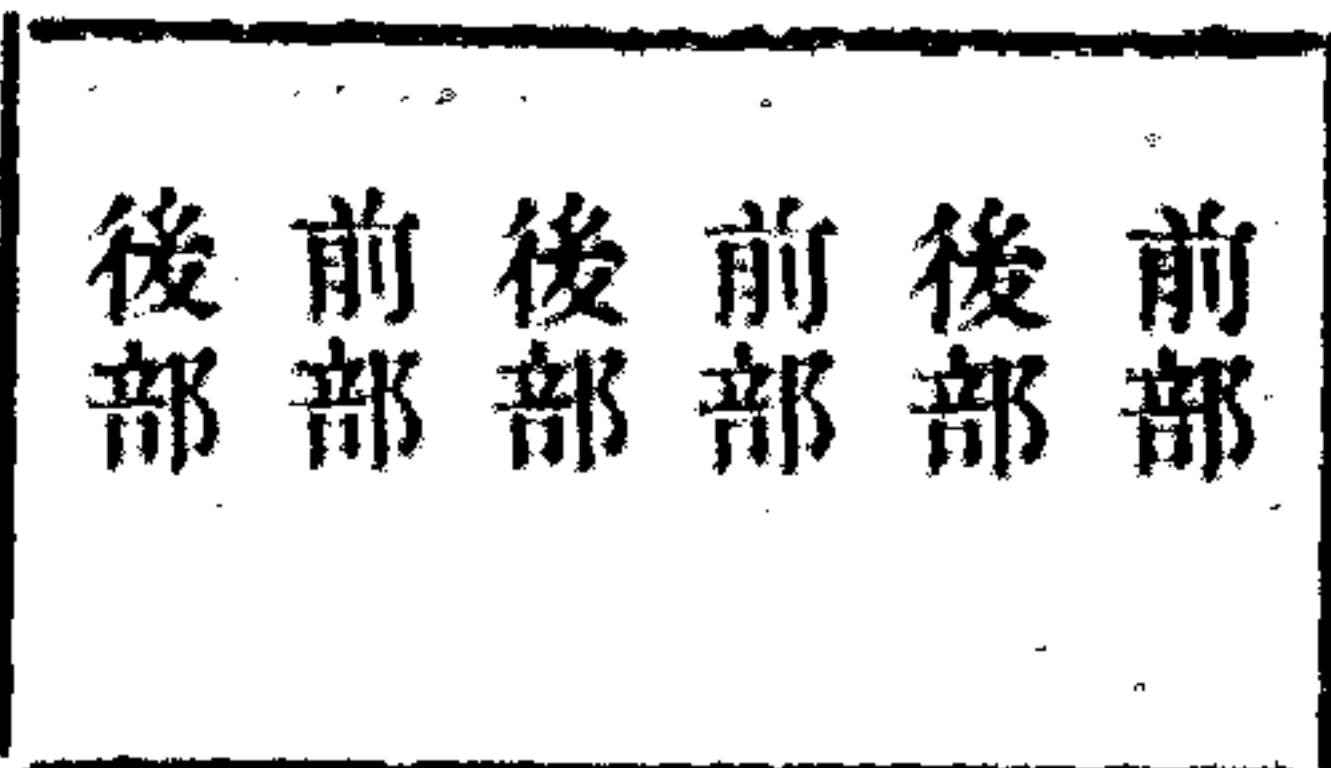 前部
後部
前部
後部
前部
後部